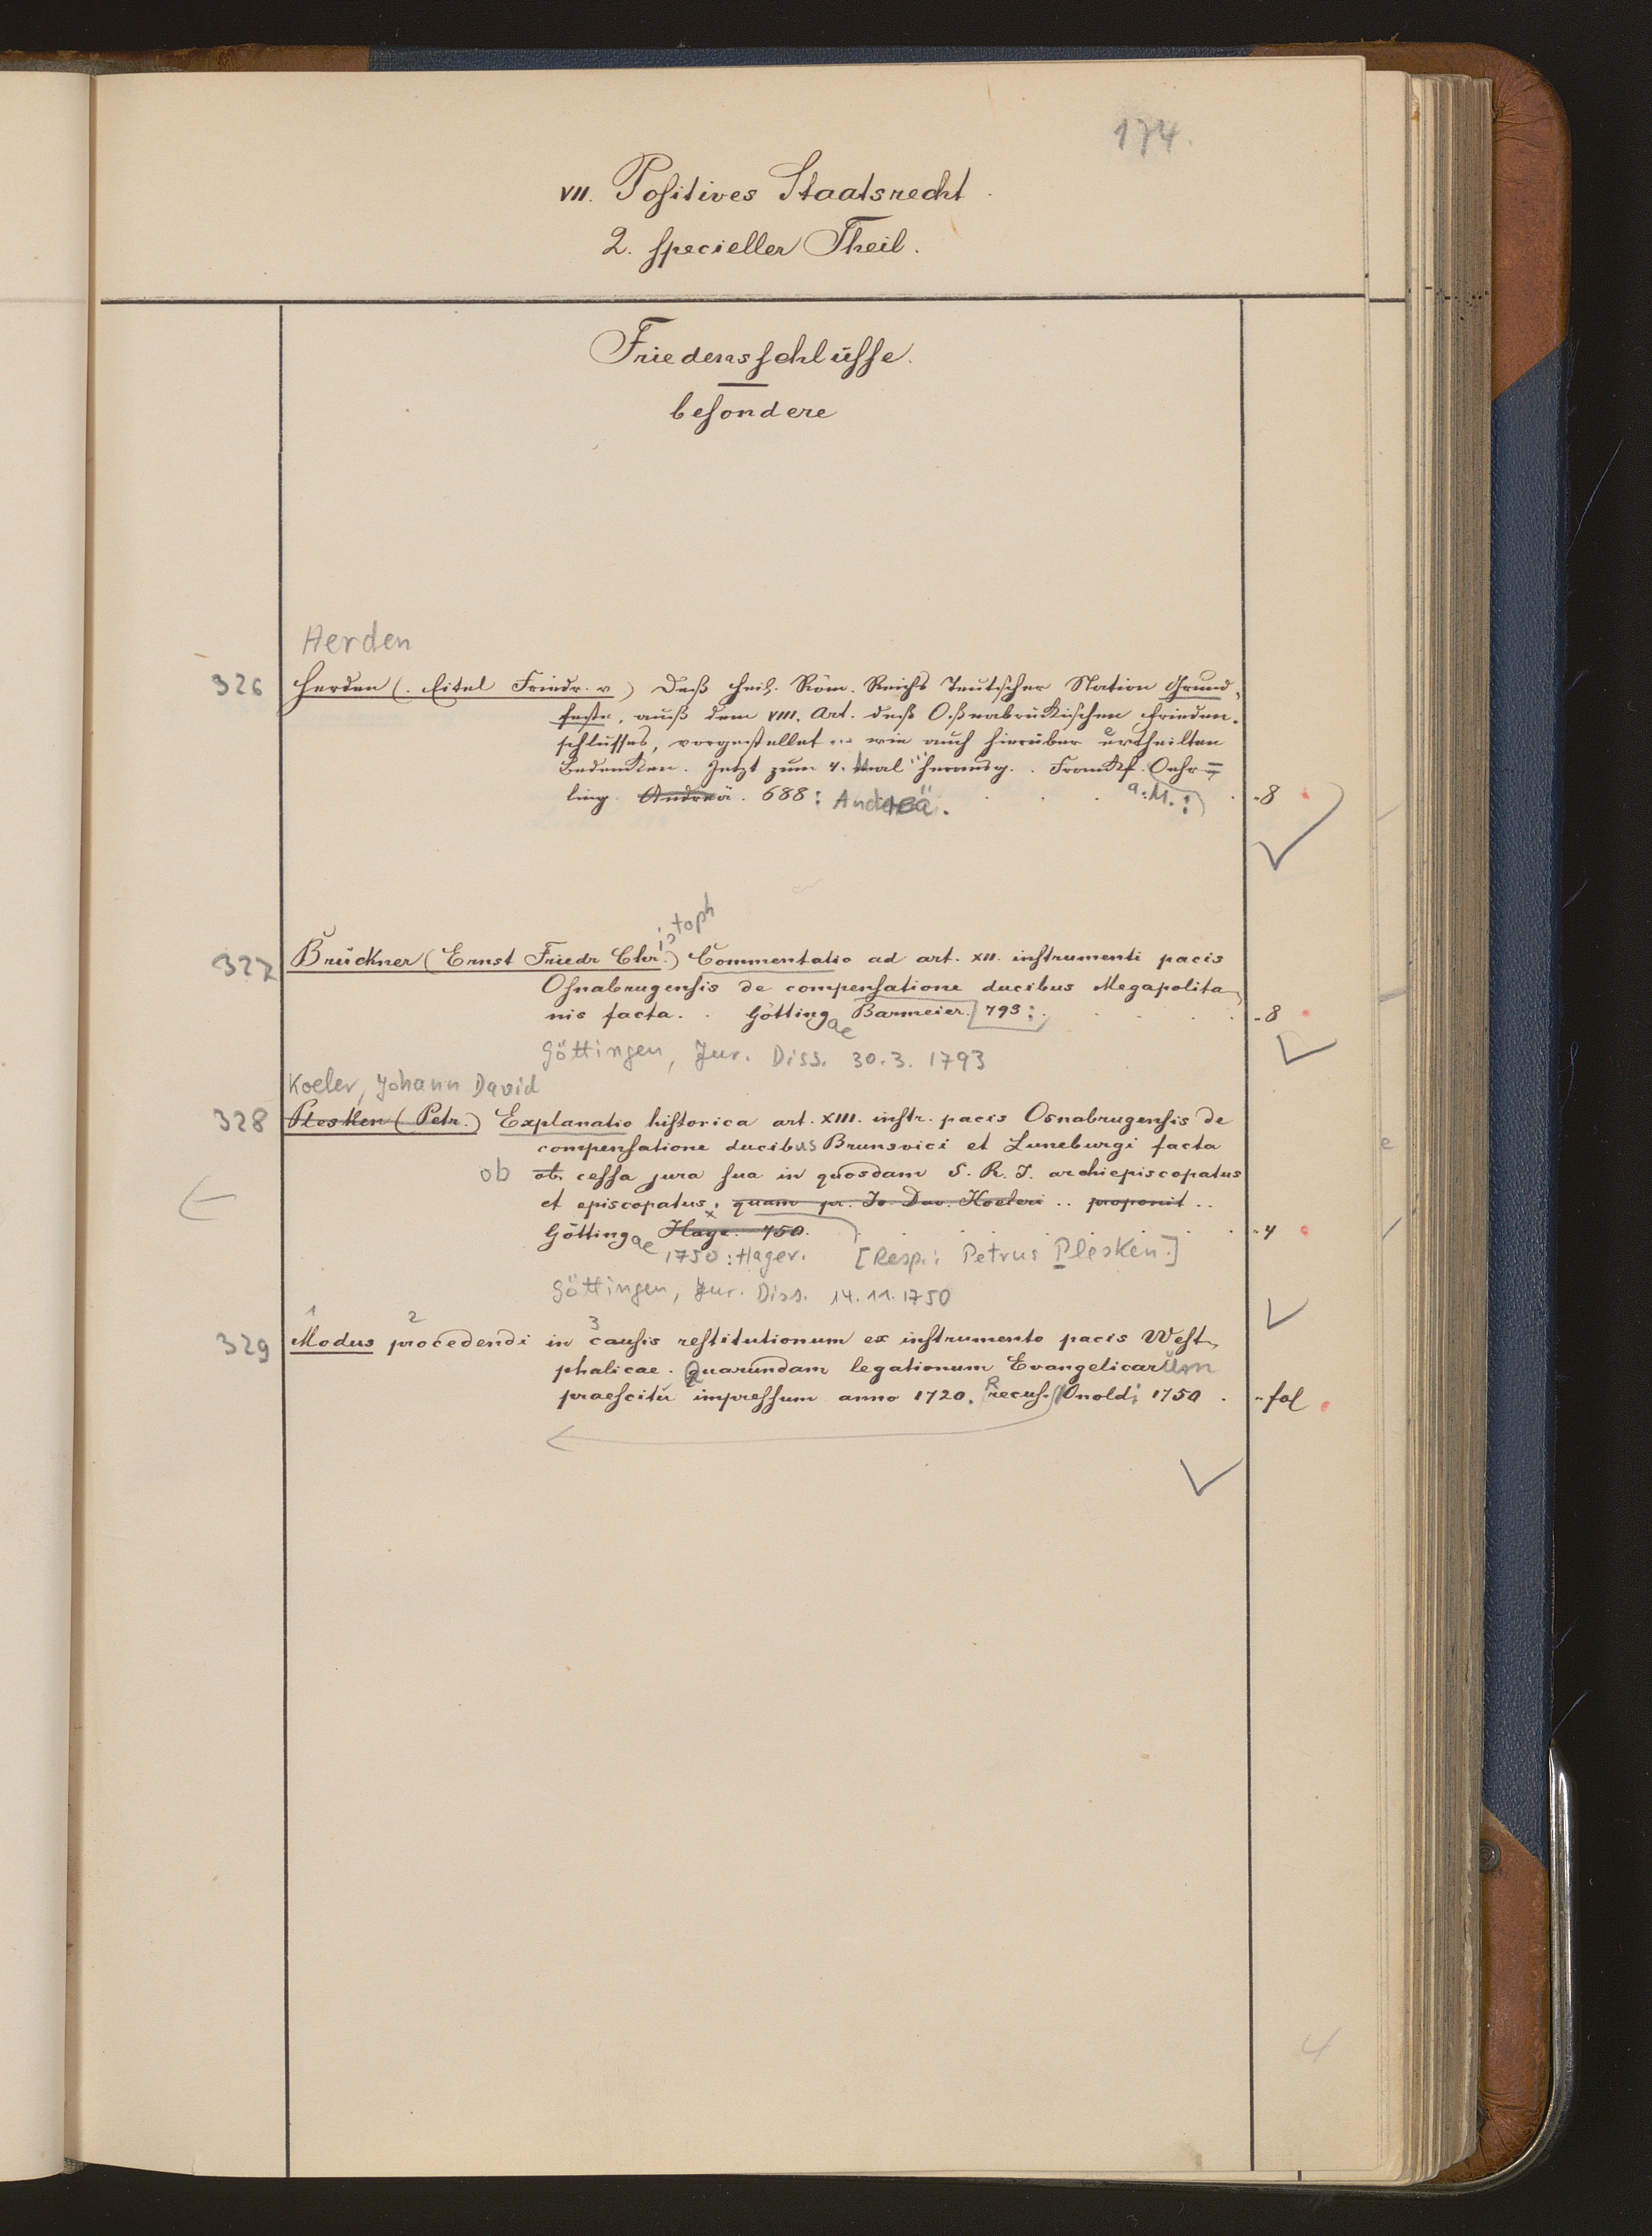 174.
VII. Positives Staatsrecht.
2. specieller Theil.
Friedensschlüsse.
besondere
Herden
326 Herden (. Eitel Friedr. v.) Deß heil. Röm. Reichs Teutscher Nation Grund-
feste, auß dem VIII. Art. deß Oßnabrückischen Frieden-
schlusses, vorgestellet ... wie auch hierüber ertheilten
Bedencken. Jetzt zum 4. Mal herausg. . Franckf. Oehr=
ling. Andreä. 688: Andreä. a.M.: -8
istoph
327 Brückner (Ernst Friedr Chr.) Commentatio ad art. XII. instrumenti pacis
Osnabrugensis de compensatione ducibus Megapolita
nis facta. . Göttingae Barmeier. 793: . -8
Göttingen, Jur. Diss. 30.3.1793
Koeler, Johann David
328 Plesken (Petr.) Explanatio historica art. XIII. instr. pacis Osnabrugensis de
compensatione ducibus Brunsvici et Luneburgi facta
ob ob. cessa jura sua in quosdam S. R. I. archiepiscopatus
et episcopatus, quam pr. Jo. Dav. Koeleri .. proponit ..
Göttingae Hage. 750. -4
1750: Hager. [Resp.: Petrus Plesken.]
Göttingen, Jur. Diss. 14.11.1750
1 2 3
329 Modus procedendi in causis restitutionum ex instrumento pacis West-
phalicae. Quarundam legationum Evangelicarum
praescitu impressum anno 1720. Recus. Onoldi 1750 . -fol
4